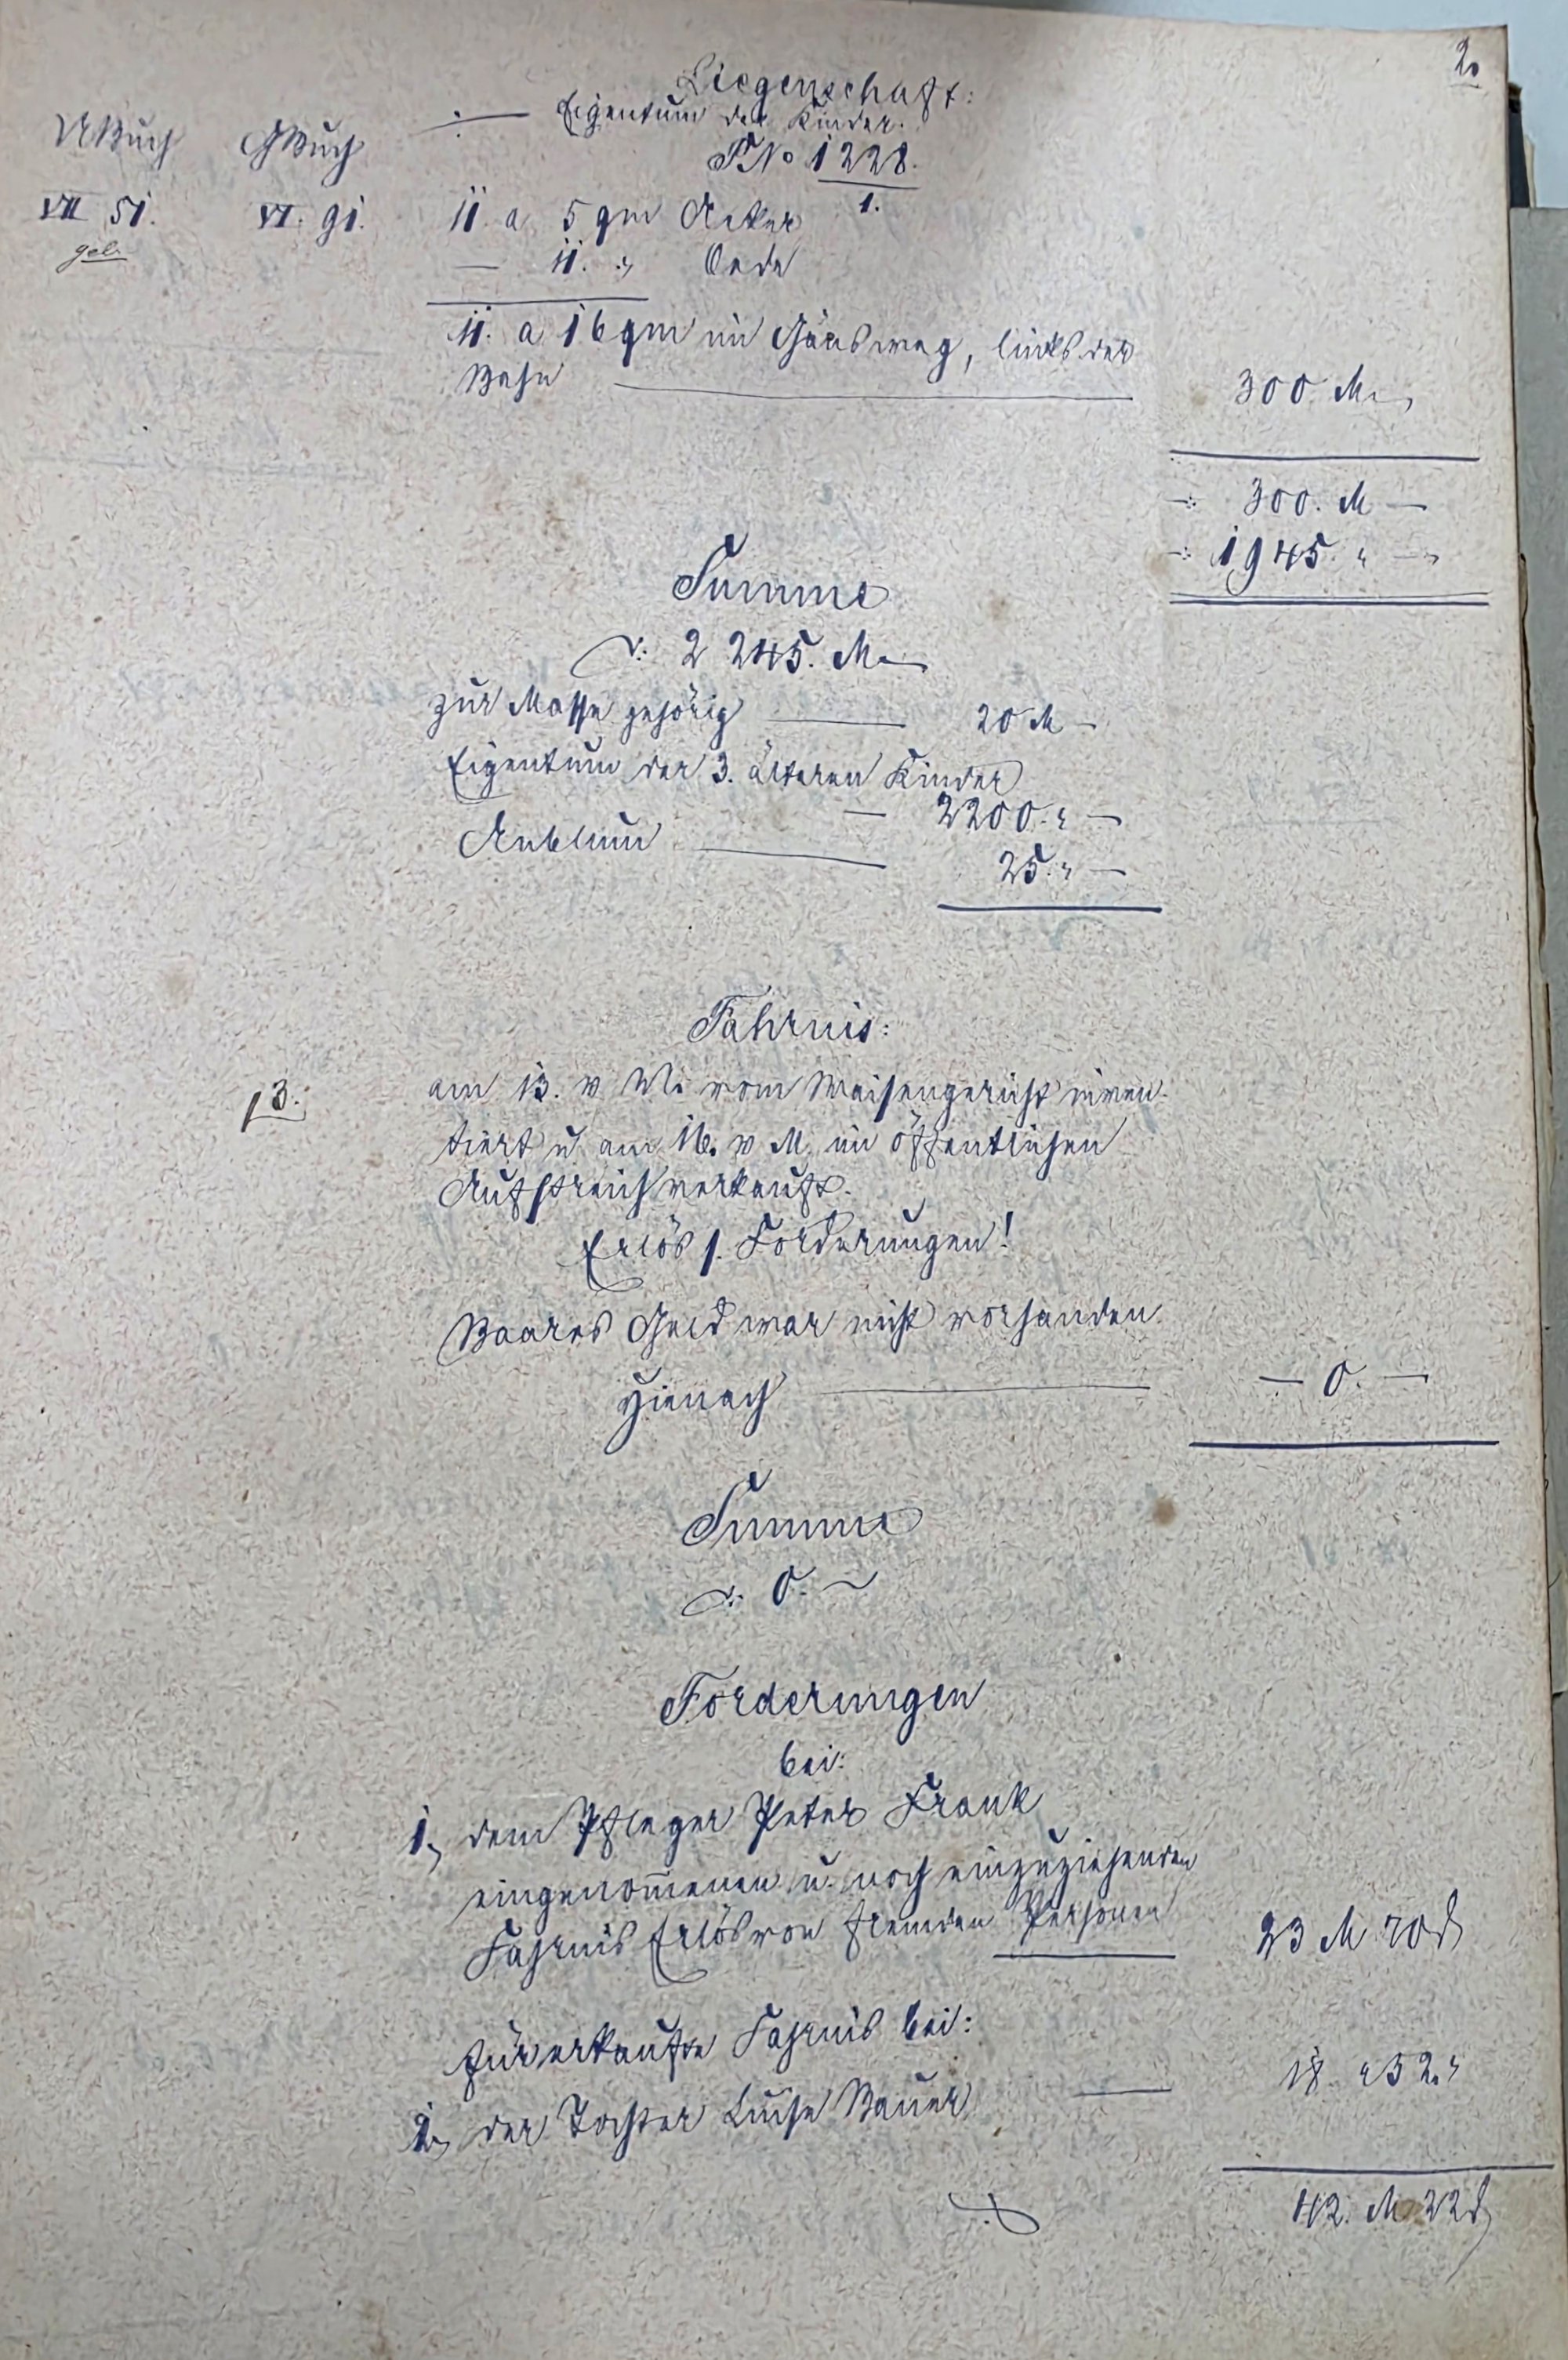 2.
Liegenschaft:
Eigentum der Kinder.
UBuch GBuch
PNo 1228.
1.
VII 51. VI. 91. 11 a 5 qm Acker
gel.
— 11. " Oede
11. a 16 qm im Gänsweg, links der
Bahn — 300 M —
300. M —
1945. " —
Summe
2 245. M —
zur Masse gehörig — 20 M —
Eigentum der 3. älteren Kinder
— 2200. " —
Anblum — 25. " —
Fahrnis:
13. am 13. v. M. vom Waisengericht inven-
tiert u. am 16. v. M. im öffentlichen
Aufstreich verkauft.
Erlös s. Forderungen!
Baares Geld war nicht vorhanden.
Hienach — 0. —
Summe
0. —
Forderungen
bei:
1, dem Pfleger Peter Frank
eingenom̄enen u. noch einzuziehenden
Fahrnis Erlös von fremden Personen 23 M 70 ₰
für erkaufte Fahrnis bei:
2, der Tochter Luise Bauer — 18. " 52. "
42. M 22 ₰